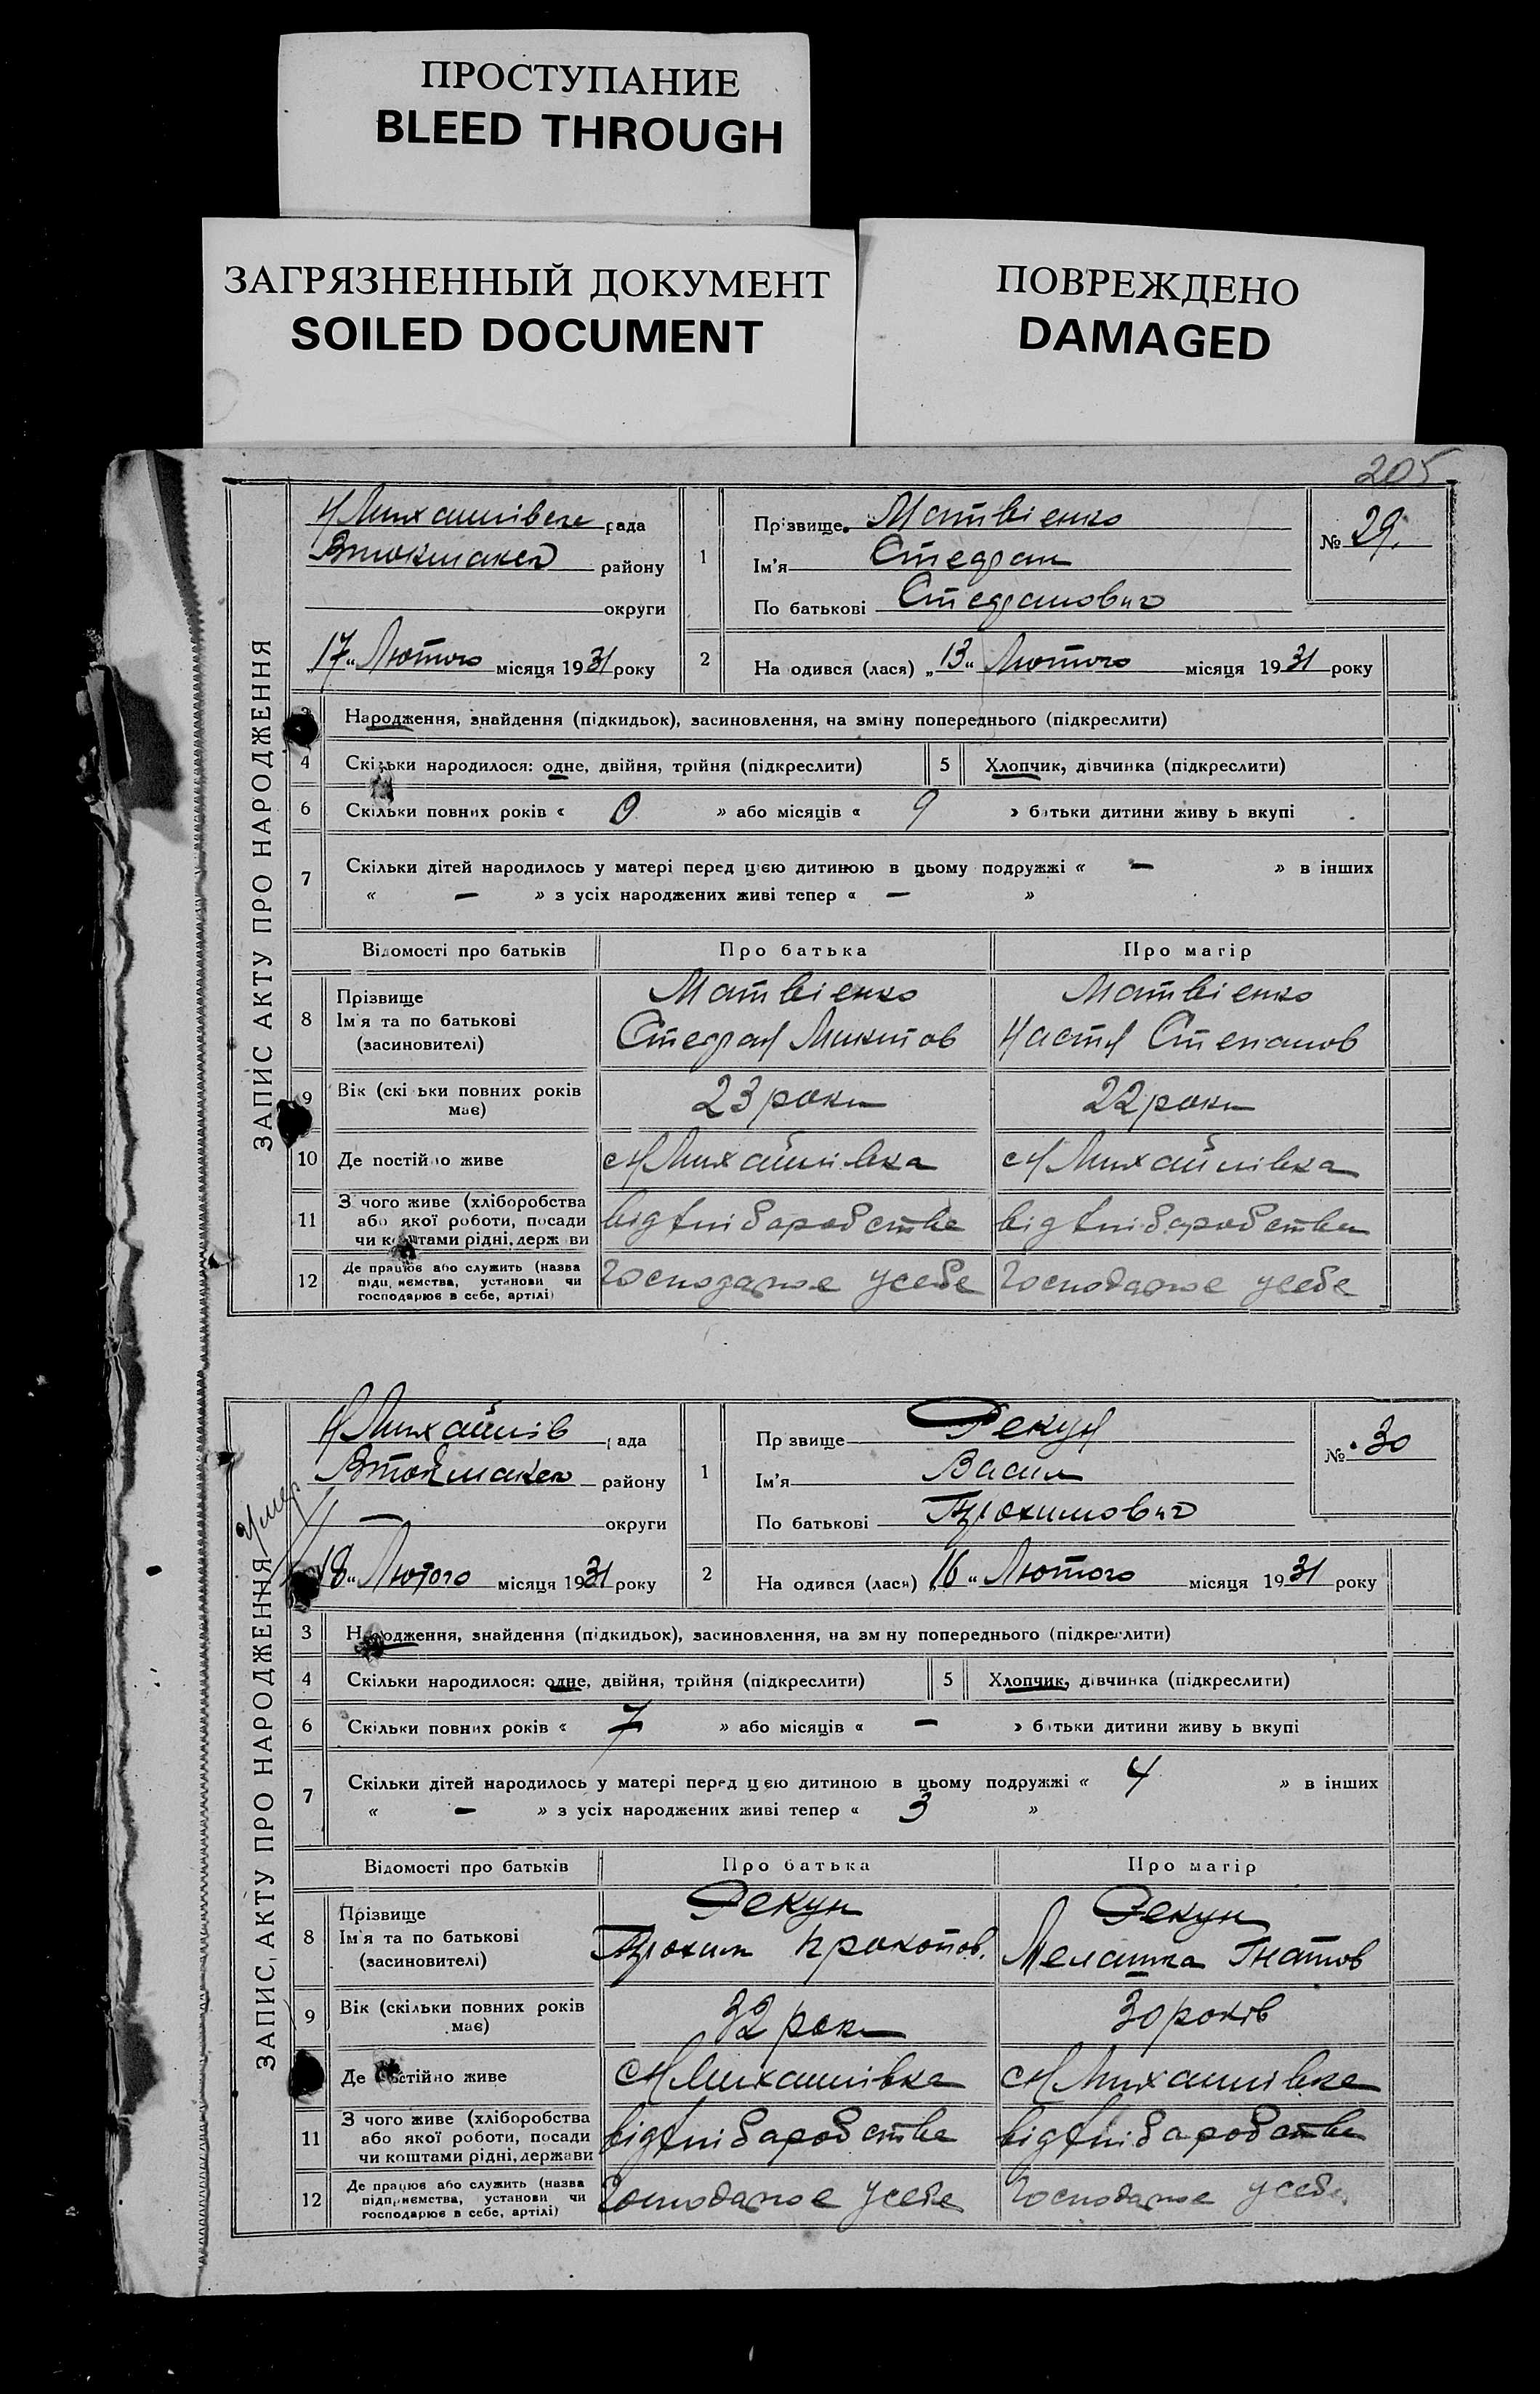 ПРОСТУПАНИЕ
BLEED THROUGH
ЗАГРЯЗНЕННЫЙ ДОКУМЕНТ
SOILED DOCUMENT
ПОВРЕЖДЕНО
DAMAGED
205
ЗАПИС АКТУ ПРО НАРОДЖЕННЯ
рада
району
округи
„17“ Лютого місяця 1931 року
1 Прізвище Матвієнко
Ім'я Стефан
По батькові Стефанович
№ 29.
2 На одився (лася) „13“ Лютого місяця 1931 року
Народження, знайдення (підкидьок), засиновлення, на зміну попереднього (підкреслити)
4 Скільки народилося: одне, двійня, трійня (підкреслити) 5 Хлопчик, дівчинка (підкреслити)
6 Скільки повних років « 0 » або місяців « 9 » батьки дитини живу ь вкупі
7 Скільки дітей народилось у матері перед цією дитиною в цьому подружжі « — » в інших
« — » з усіх народжених живі тепер « — »
Відомості про батьків Про батька Про матір
8 Прізвище Матвієнко Матвієнко
Ім'я та по батькові Стефан Микитов Настя Степанов
(засиновителі)
9 Вік (скі ьки повних років має) 23 роки 22 роки
10 Де постійно живе с Н Михайлівка с Н Михайлівка
11 З чого живе (хліборобства або якої роботи, посади чи коштами рідні, держ ви від хліборобства від хліборобства
12 Де працює або служить (назва підприємства, установи чи господарює в себе, артілі) Господарює у себе Господарює у себе
ЗАПИС АКТУ ПРО НАРОДЖЕННЯ
Умер
Н Михайлів ада
району
— округи
„18“ Лютого місяця 1931 року
1 Пр звище Фекун
Ім'я Васил
По батькові Трохимович
№ 30
2 На одився (лася) „16“ Лютого місяця 1931 року
3 Народження, знайдення (підкидьок), засиновлення, на зм ну попереднього (підкреслити)
4 Скільки народилося: одне, двійня, трійня (підкреслити) 5 Хлопчик, дівчинка (підкреслити)
6 Скільки повних років « 7 » або місяців « — » батьки дитини живу ь вкупі
7 Скільки дітей народилось у матері перед цією дитиною в цьому подружжі « 4 » в інших
« — » з усіх народжених живі тепер « 3 »
Відомості про батьків Про батька Про матір
8 Прізвище Фекун Фекун
Ім'я та по батькові Трохим Прокопов. Мелашка Гнатов
(засиновителі)
9 Вік (скільки повних років має) 32 роки 30 років
Де постійно живе с Н Михайлівка с Н Михайлівка
11 З чого живе (хліборобства або якої роботи, посади чи коштами рідні, держави від хліборобства від хліборобства
12 Де працює або служить (назва підприємства, установи чи господарює в себе, артілі) Господарює у себе Господарює у себе